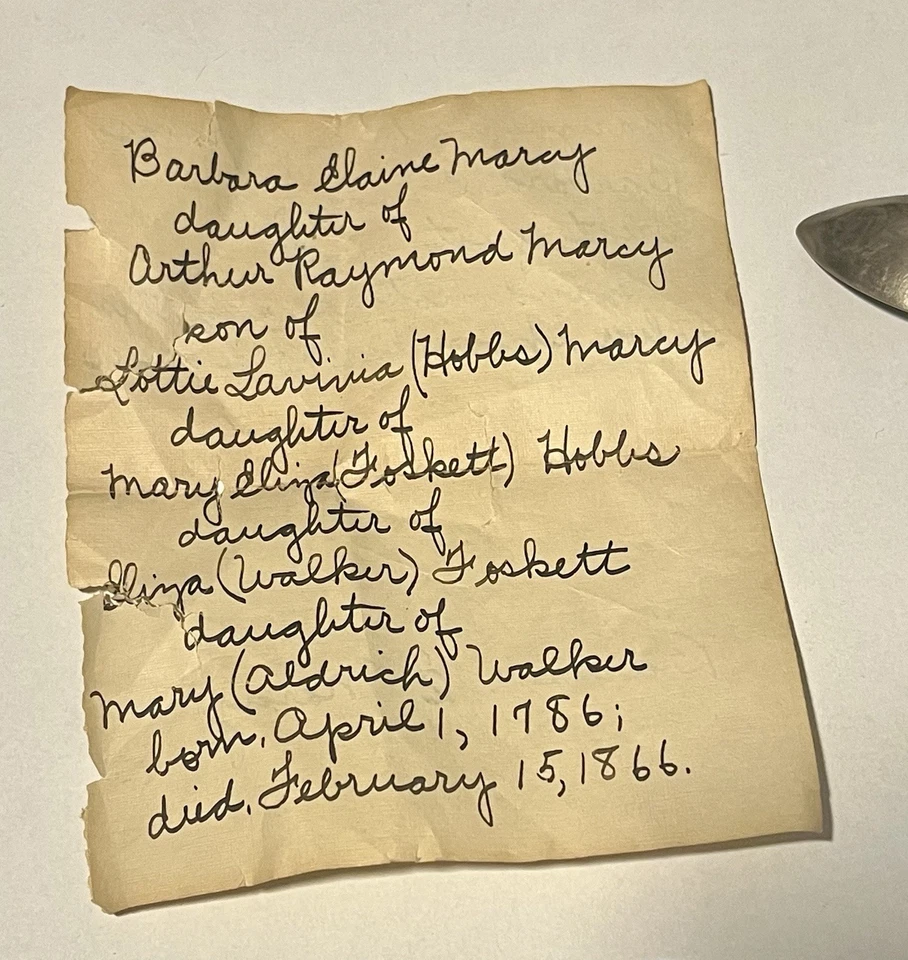 Barbara Elaine Marcy
daughter of
Arthur Raymond Marcy
son of
Lottie Lavinia (Hobbs) Marcy
daughter of
Mary Eliza (Foskett) Hobbs
daughter of
Eliza (Walker) Foskett
daughter of
Mary (Aldrich) Walker
born, April 1, 1786;
died, February 15, 1866.